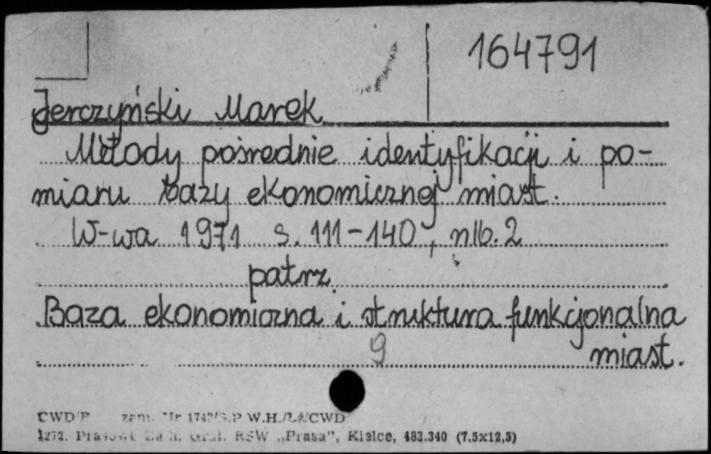 164791
Jerczyński Marek
Metody pośrednie identyfikacji i po-
miaru bazy ekonomicznej miast.
W-wa 1971 s. 111-140, nlb. 2
patrz
Baza ekonomiczna i struktura funkcjonalna
miast.
9
CWD/P zam. Nr W.H./Łź/CWD
1272. Zakł. Graf. RSW „Prasa", Kielce, 483.340 (7,5x12,5)